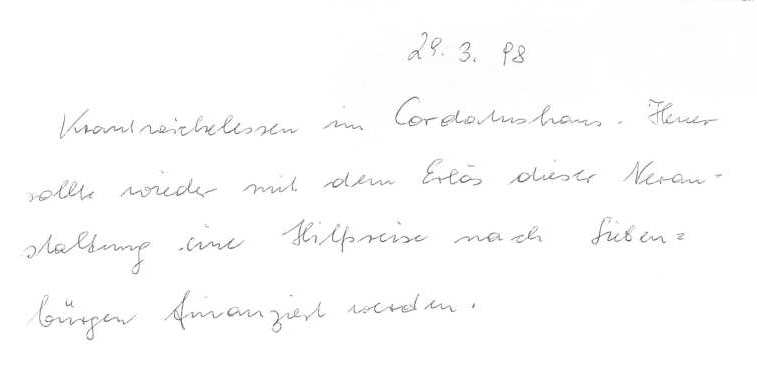 29.3.98
Krautwickelessen im Cordatushaus. Heuer
sollte wieder mit dem Erlös dieser Veran-
staltung eine Hilfsreise nach Sieben=
bürgen finanziert werden.